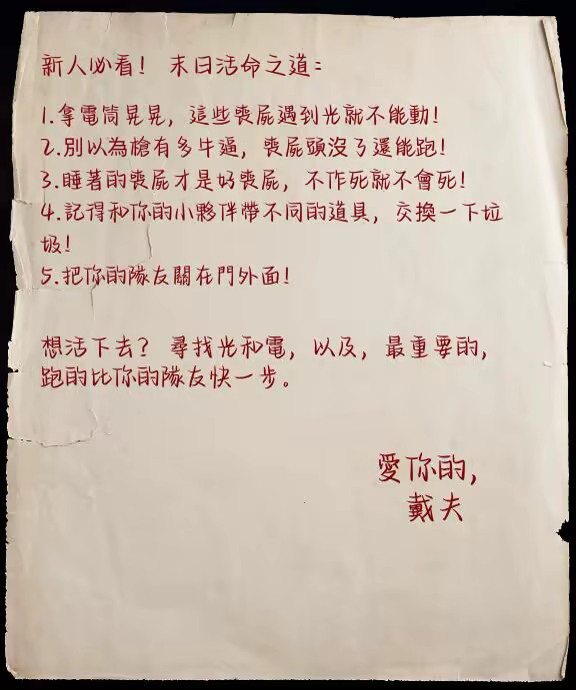 新人必看! 末日活命之道:
1.拿電筒晃晃, 這些喪屍遇到光就不能動!
2.別以為槍有多牛逼, 喪屍頭沒了還能跑!
3.睡著的喪屍才是好喪屍, 不作死就不會死!
4.記得和你的小夥伴帶不同的道具, 交換一下垃
圾!
5.把你的隊友關在門外面!
想活下去? 尋找光和電, 以及, 最重要的,
跑的比你的隊友快一步。
愛你的,
戴夫